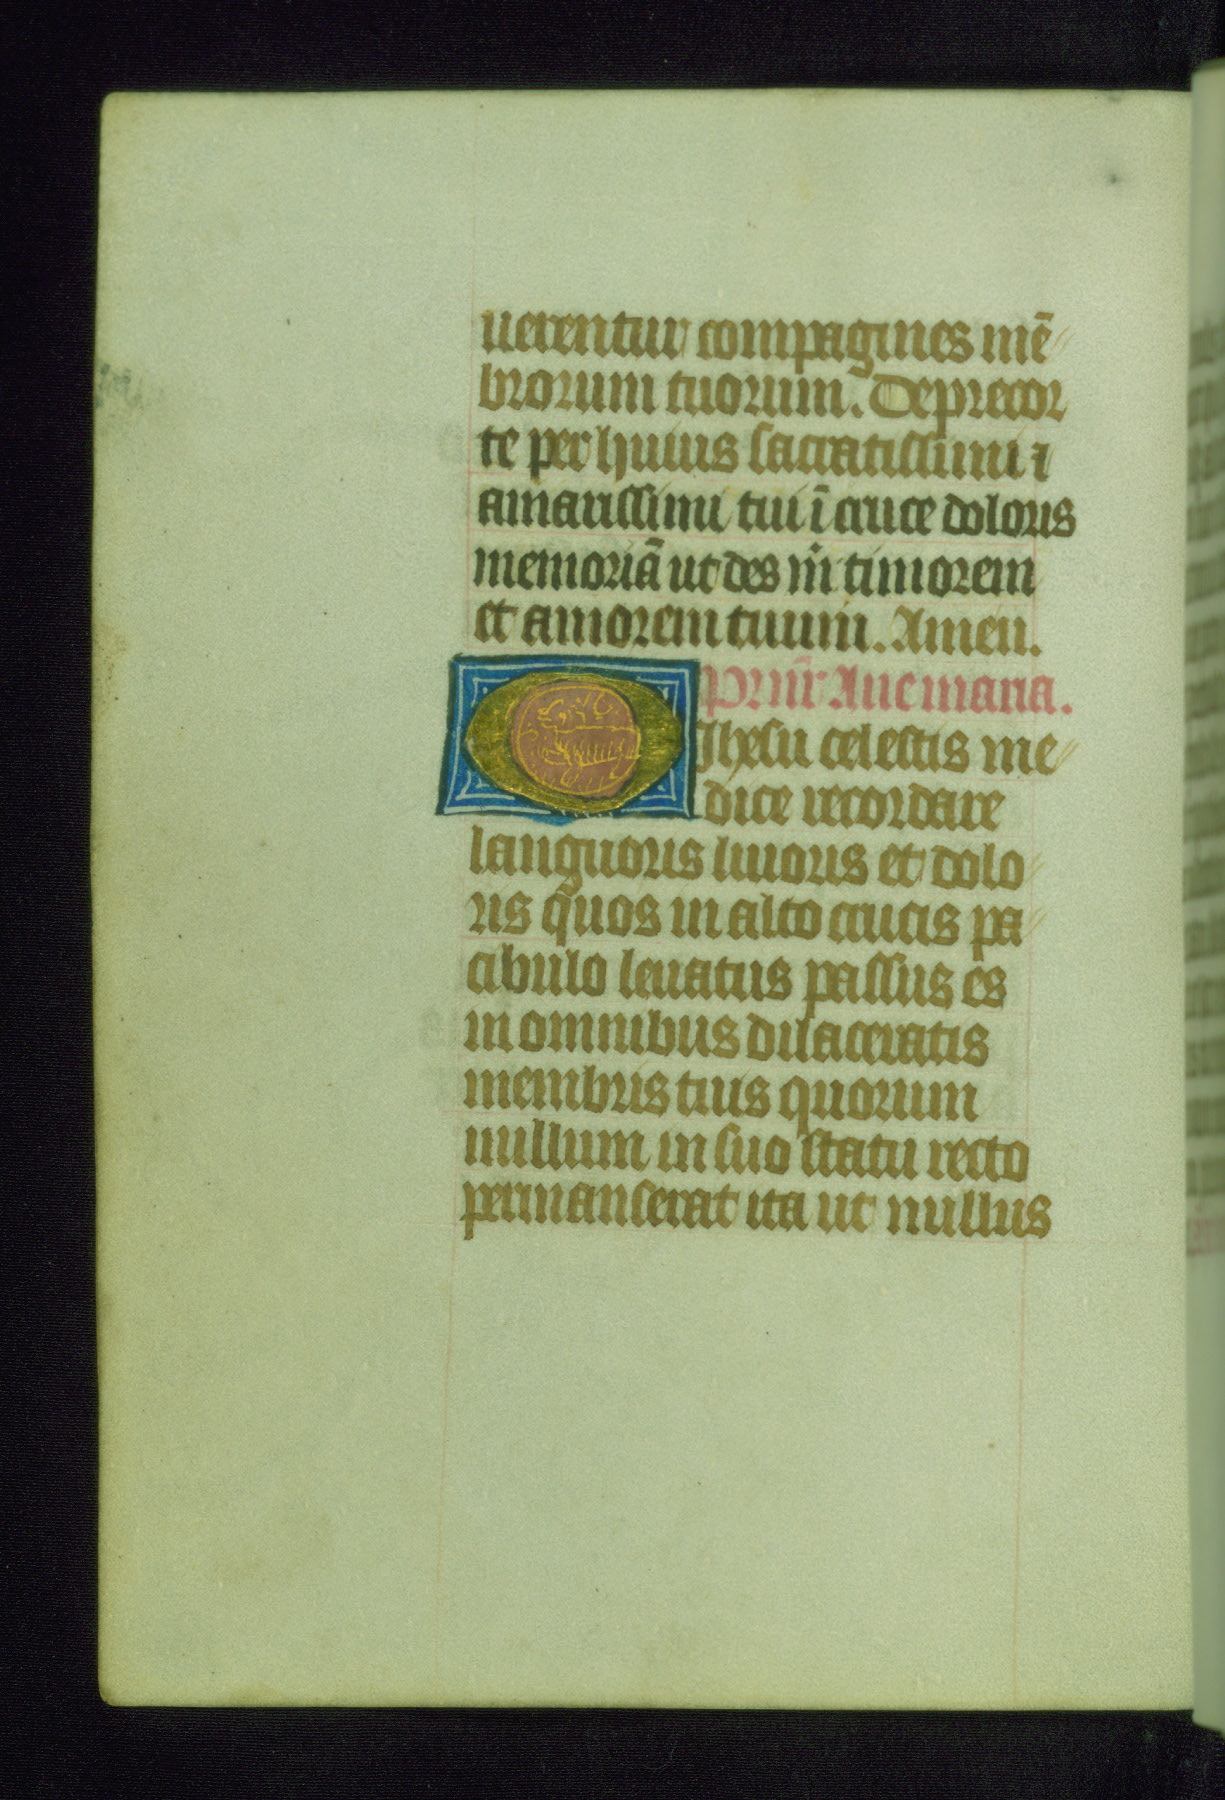 uerentur compagines mē
brorum tuorum. Deprecor
te per huius sacratissimi ⁊
amarissimi tui ī cruce doloris
memoriā ut des m̄ timorem
et amorem tuum. Amen.
Pr̄ nr̄ Aue maria.
O Jhesu celestis me
dice recordare
languoris liuoris et dolo
ris quos in alto crucis pa
cibulo leuatus passus es
in omnibus dilaceratis
membris tuis quorum
nullum in suo statu recto
permanserat ita ut nullus